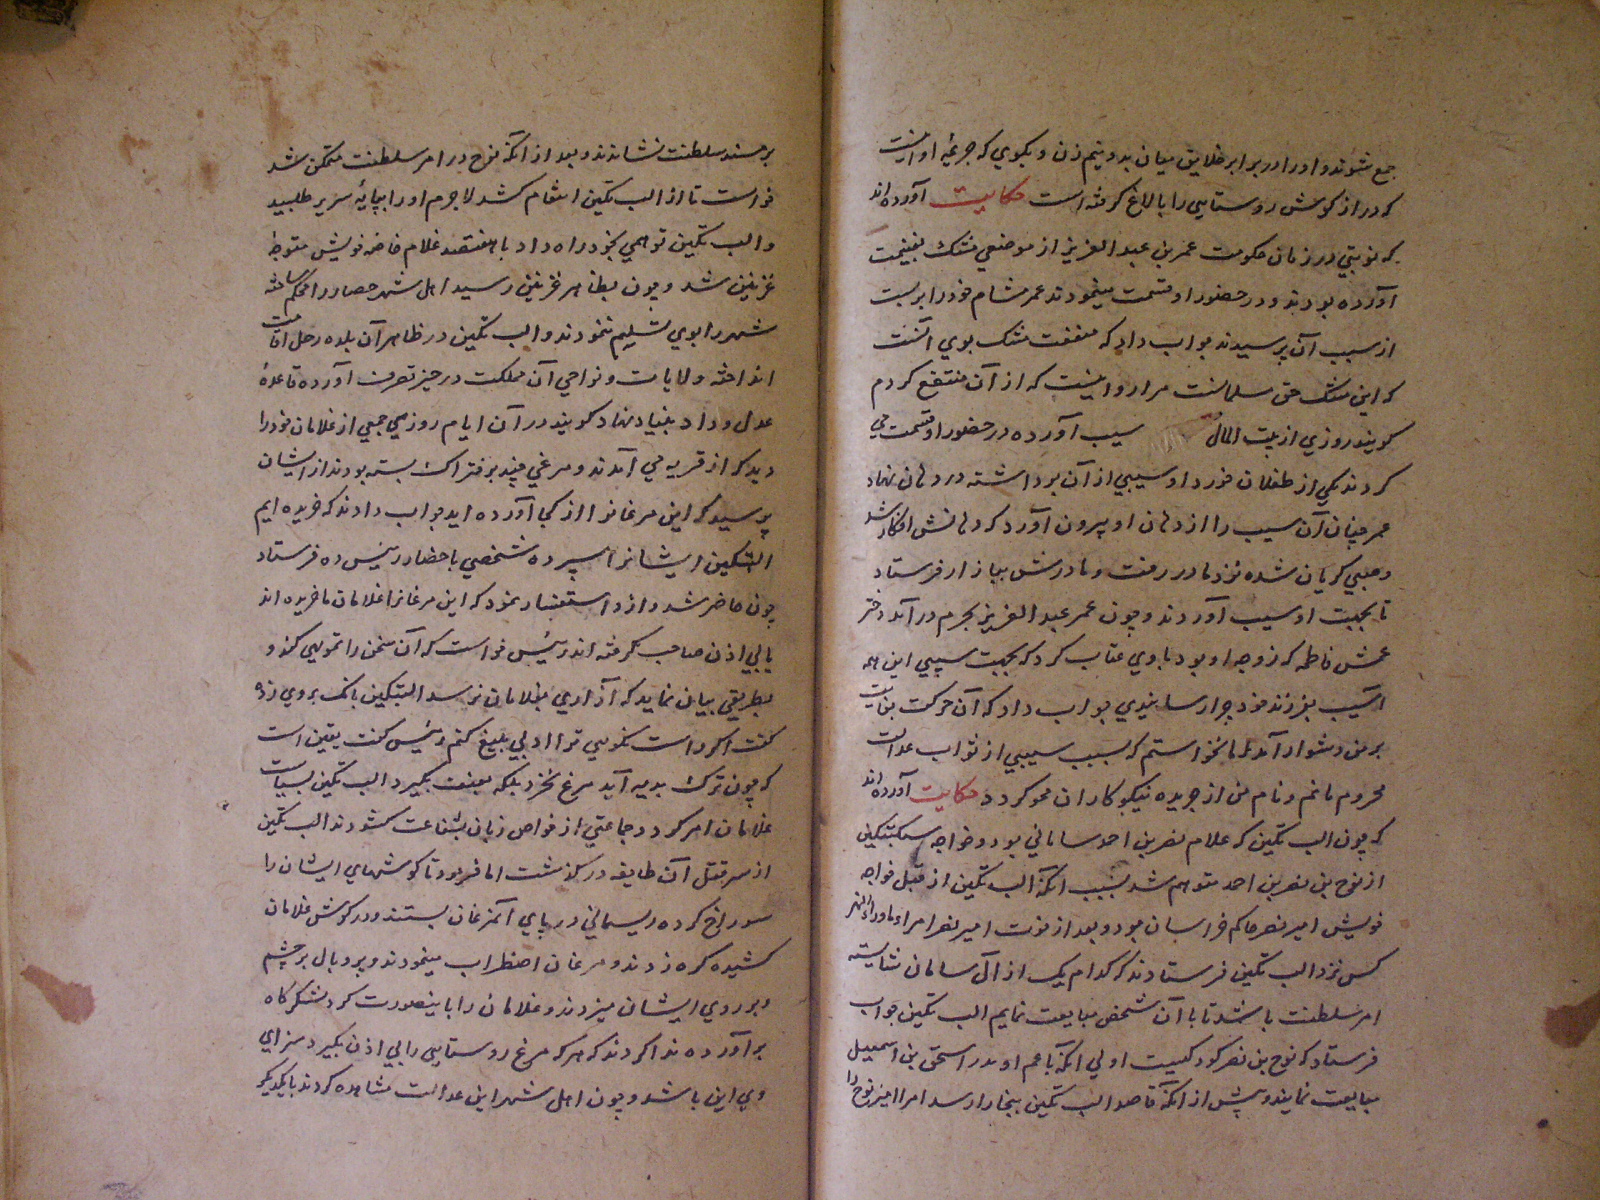 جمع شوند و او را در برابر خلایق میان بدو نیم زن و بکوی که جزیمهٔ او اینست
که دراز کوش روستایی را بالاغ کرفته است حکایت آورده اند
که نوبتی در زمان حکومت عمر بن عبد العزیز از موضعی مشک بغنیمت
آورده بودند و در حضور او قسمت مینمودند عمر مشام خود را بربست
از سبب آن پرسیدند جواب داد که منفعت مشک بوی آنست
که این مشک حق مسلمانست مرا روا نیست که از آن منتفع کردم
کویند روزی از بیت المال سیب آورده در حضور او قسمت می
کردند یکی از طفلان خورد او سیبی از آن برداشته در دهان نهاد
عمر چنان آن سیب را از دهان او بیرون آورد که دهانش افکار شد
و صبی کریان شده نزد مادر رفت و مادرش ببازار فرستاد
تا بجهت او سیب آوردند و چون عمر عبد العزیز بحرم درآمد دختر
عمش فاطمه که زوجه او بود با وی عتاب کرد که بجهت سیبی این همه
آسیب بفرزند خود چرا رسانیدی جواب داد که آن حرکت بغایت
بر من دشوار آمد اما نخواستم که بسبب سیبی از ثواب عدالت
محروم مانم و نام من از جریده نیکوکاران محو کردد حکایت آورده اند
که چون الب تکین که غلام نصر بن احمد سامانی بود و خواجه سبکتکین
از نوح بن نصر بن احمد متوهم شد بسبب آنکه الب تکین از قبل خواجه
خویش امیر نصر حاکم خراسان بود و بعد از فوت امیر نصر امراء ماوراء النهر
کس نزد الب تکین فرستادند که کدام یک از آل سامان شایسته
امر سلطنت باشد تا با آن شخص مبایعت نمایم الب تکین جواب
فرستاد که نوح بن نصر کودکست اولی آنکه با عم او بدر اسحق بن اسمعیل
مبایعت نمایند و پیش از آنکه قاصد الب تکین ببخارا رسد امرا امیر نوح را
بر مسند سلطنت نشاندند و بعد از آنکه نوح در امر سلطنت متمکن شد
خواست تا از الب تکین انتقام کشد لاجرم او را بپایهٔ سریر طلبید
و الب تکین توهمی بخود راه داد با هفتصد غلام خاصه خویش متوجه
غزنین شد و چون بظاهر غزنین رسید اهل شهر حصار را محکم ساخته
شهر را بوی تسلیم ننمودند و الب تکین در ظاهر آن بلده رحل اقامت
انداخته ولایات و نواحی آن مملکت در حیز تصرف آورده قاعدهٔ
عدل و داد بنیاد نهاد کویند در آن ایام روزی جمعی از غلامان خود را
دید که از قریه می آمدند و مرغی چند بر فتراک بسته بودند از ایشان
پرسید که این مرغانرا از کجا آورده اید جواب دادند که خریده ایم
البتکین ایشانرا سپرده شخصی باحضار رئیس ده فرستاد
چون حاضر شد و از و استفسار نمود که این مرغانرا غلامان ما خریده اند
یا بی اذن صاحب کرفته اند رئیس خواست که آن سخن را تمویهی کند و
بطریقی بیان نماید که آزاری بغلامان نرسد البتکین بانک بر وی زد و
کفت اکر راست نکویی ترا ادبی بلیغ کنم رئیس کفت یقین است
که چون ترک بدیه آید مرغ نخرد بلکه بعنف بکیرد الب تکین بسیاست
غلامان امر کرد و جماعتی از خواص زبان بشفاعت کشودند الب تکین
از سر قتل آن طایفه درکذشت اما فرمود تا کوشهای ایشان را
سوراخ کرده ریسمانی در پای آنمرغان بستند و در کوش غلامان
کشیده کره زدند و مرغان اضطراب مینمودند و پر و بال بر چشم
و بر روی ایشان میزدند و غلامان را باینصورت کرد لشکرکاه
برآورده ندا کردند که هر که مرغ روستایی را بی اذن بکیرد سزای
وی این باشد و چون اهل شهر این عدالت مشاهده کردند با یکدیکر